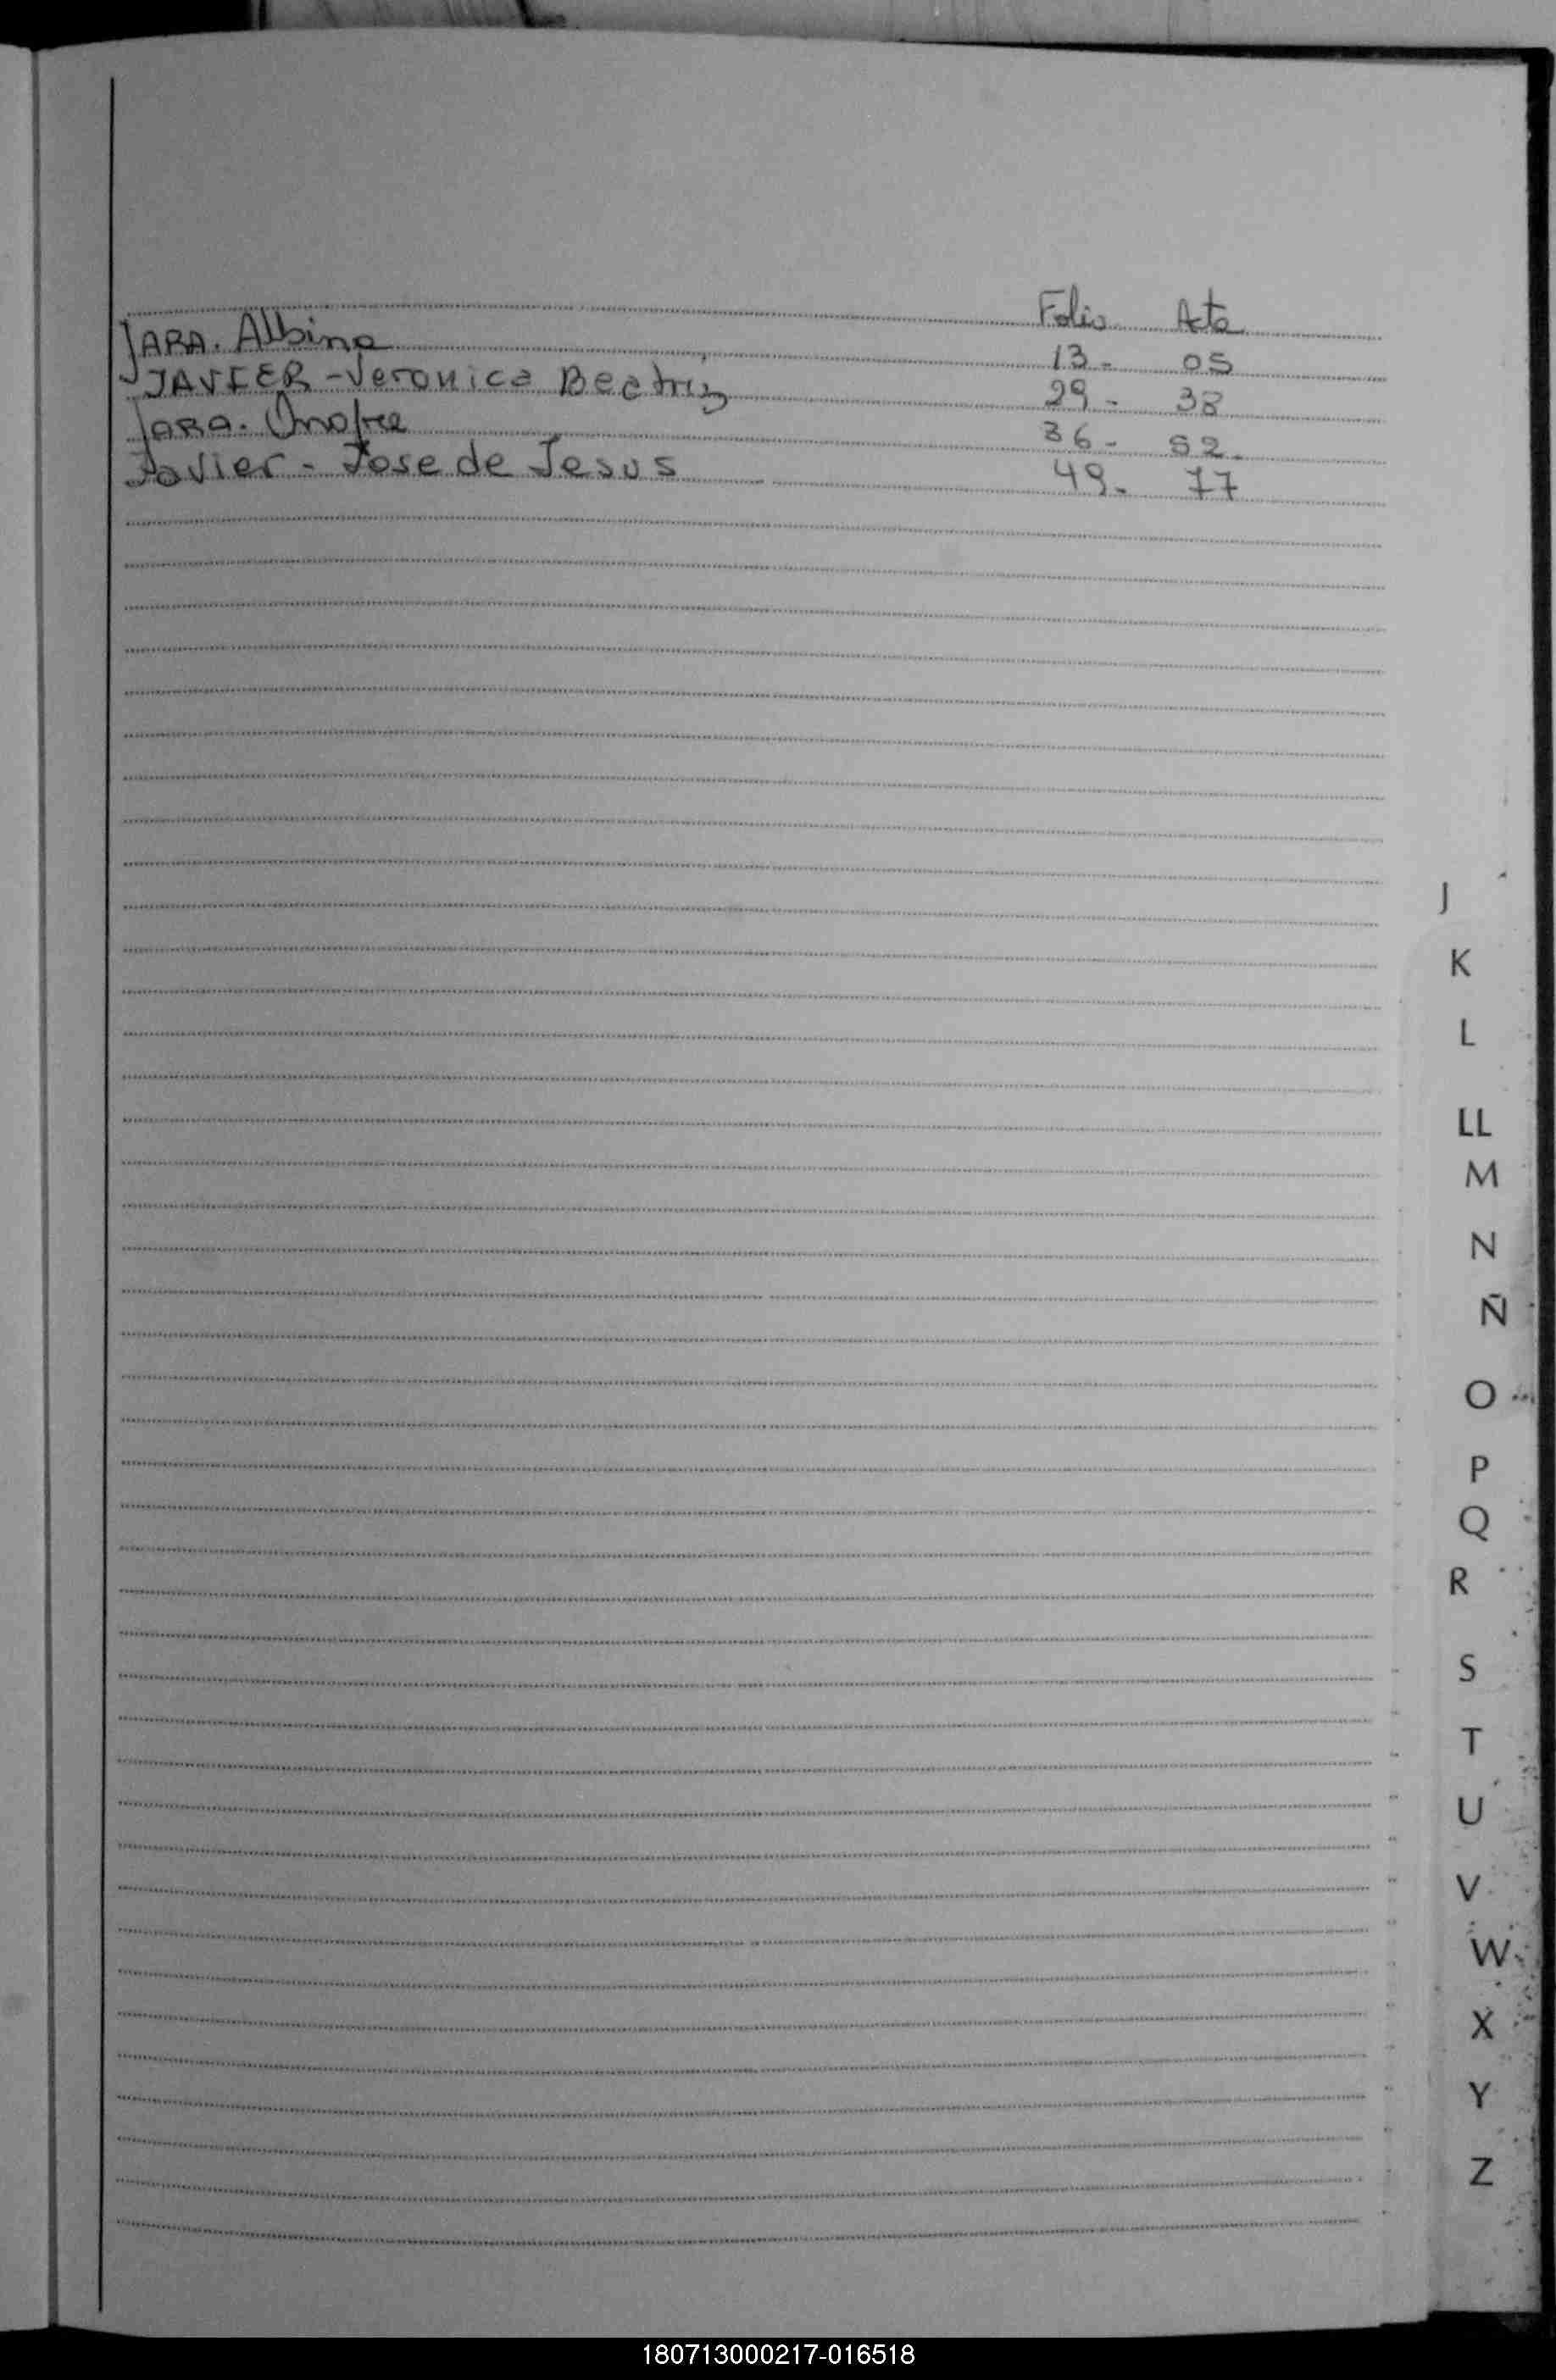 Folio Acta
JARA. Albina 13- 05
JAVIER - Veronica Beatriz 29- 38
JARA. Onofre 36- 52.
Javier - Jose de Jesus 49- 77
J
K
L
LL
M
N
Ñ
O
P
Q
R
S
T
U
V
W
X
Y
Z
180713000217-016518